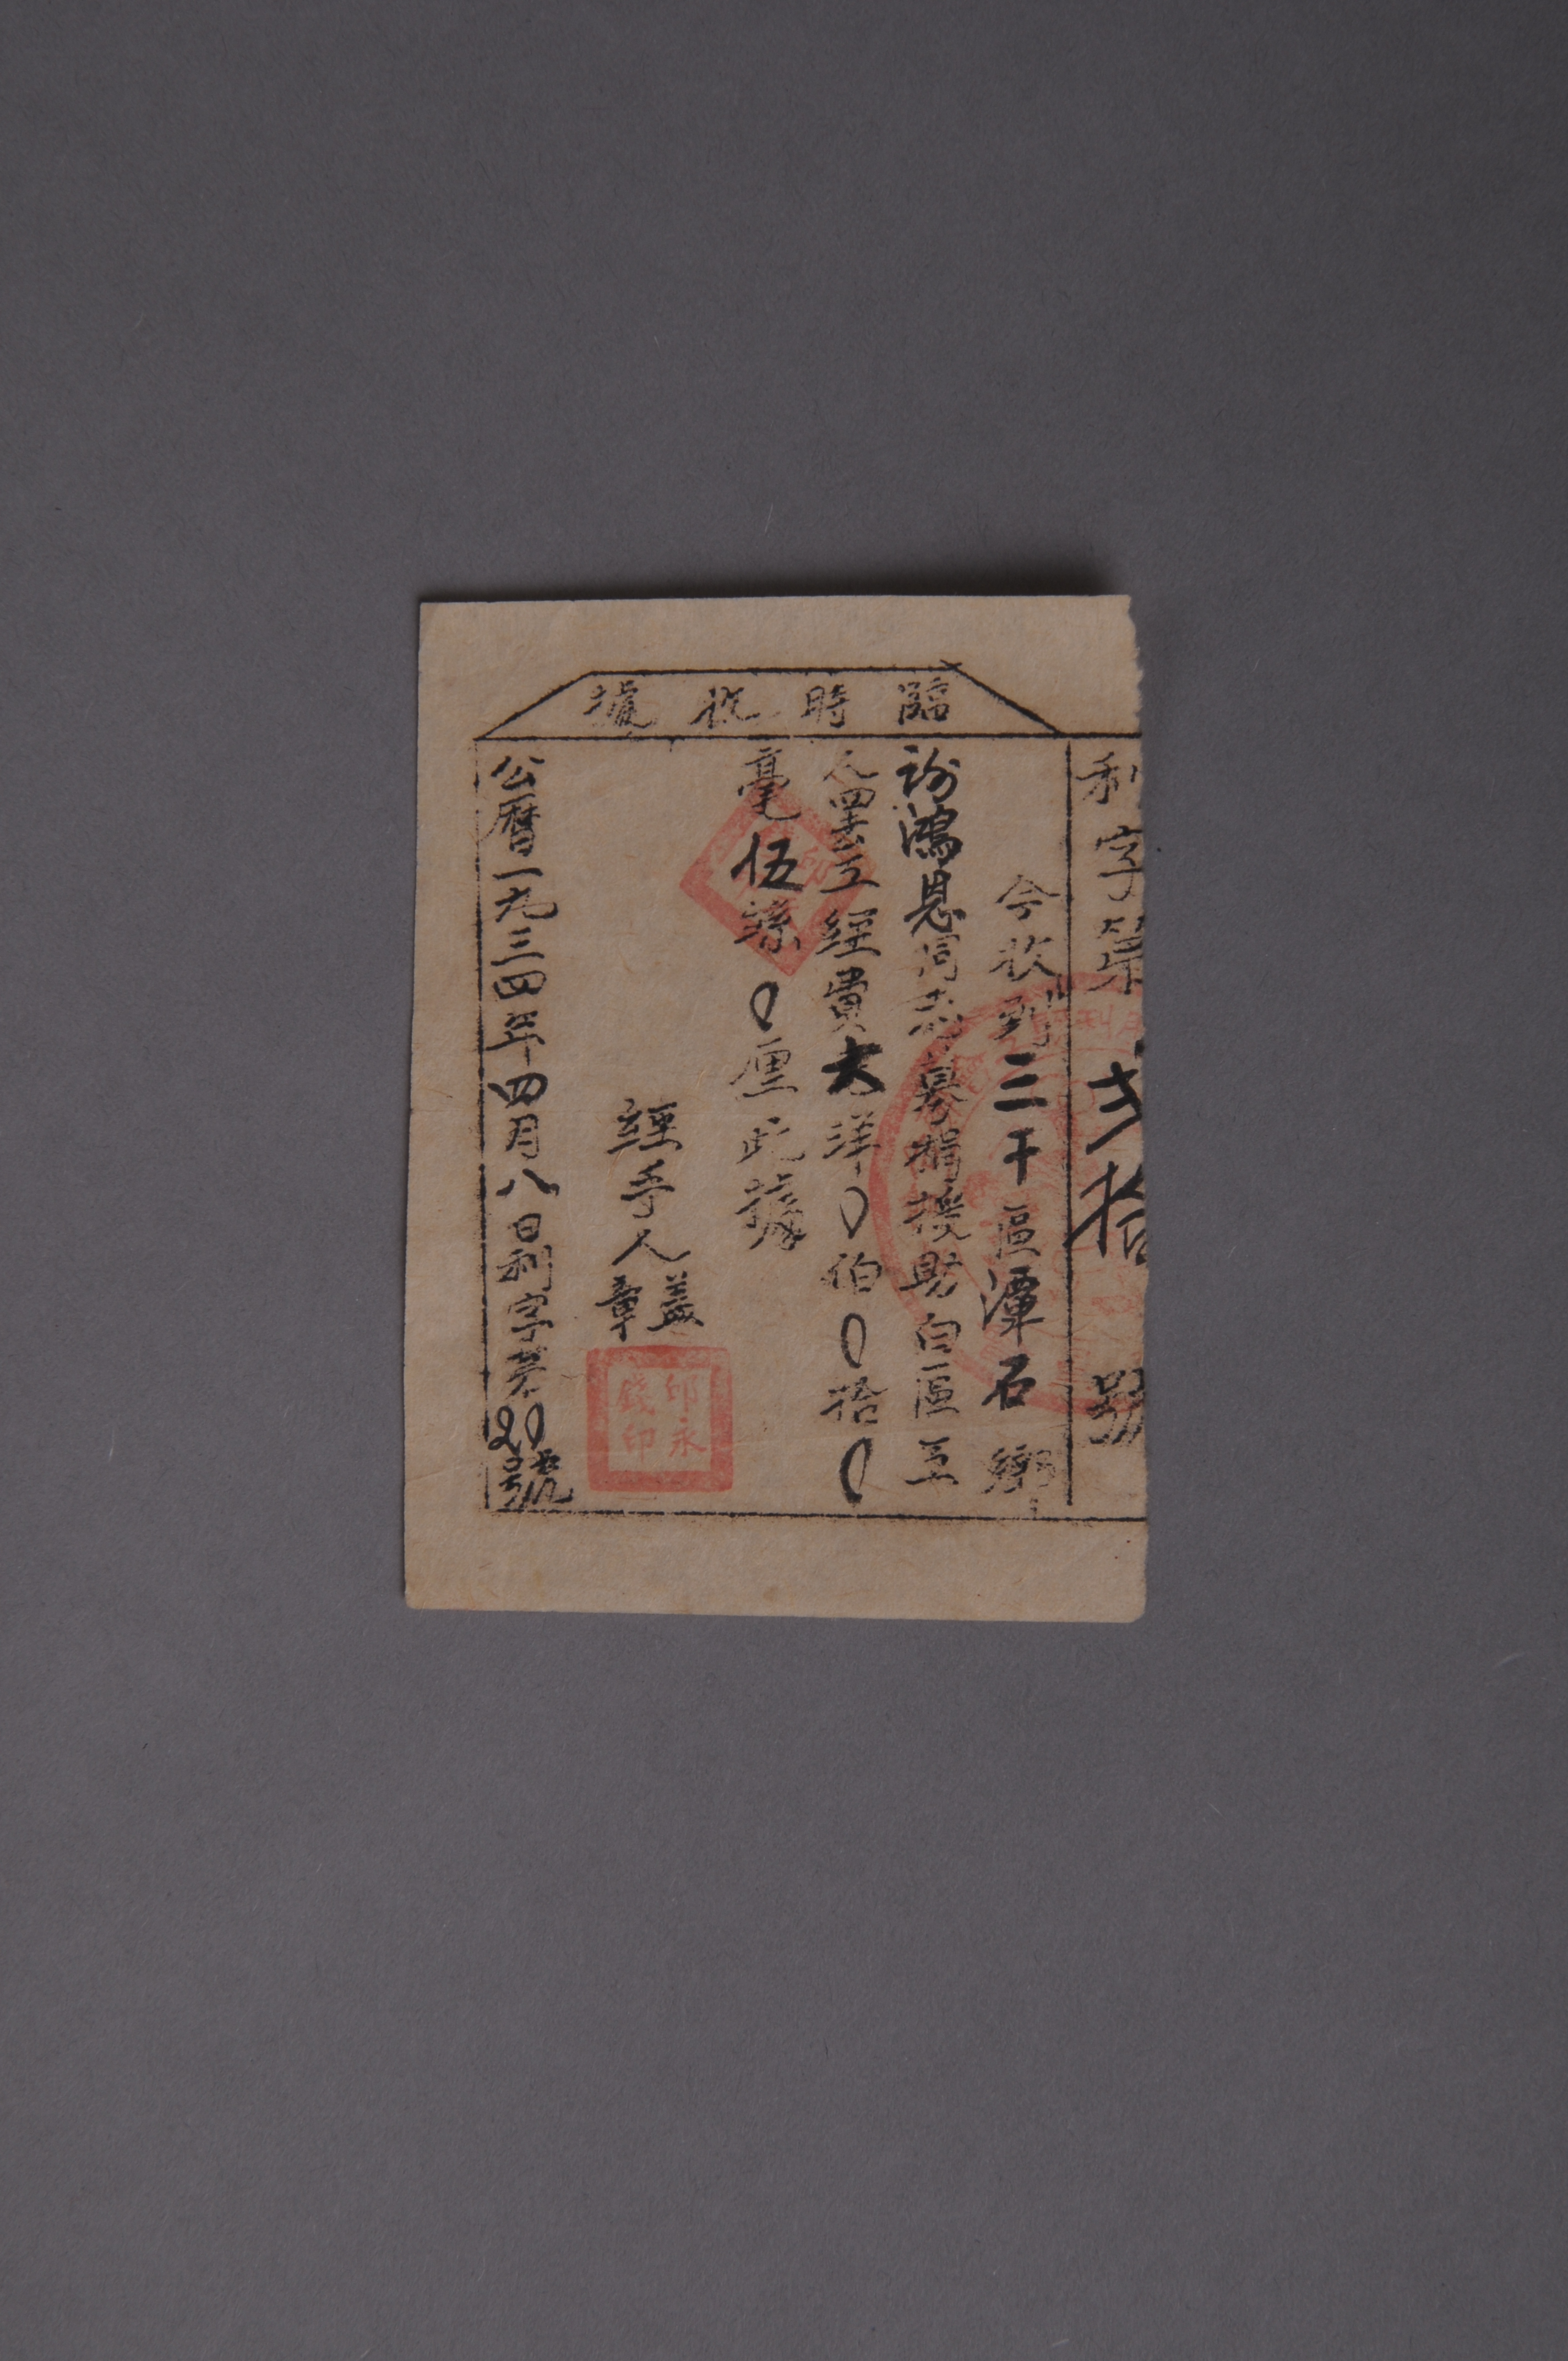 臨時收據
利字第弍拾號
今收到三干區潭石鄉
謝鴻恩同志募捐援助白區工
人罢工經費大洋0伯0拾0
毫伍
0厘此據
經手人
蓋章
邱永錢印
公曆一九三四年四月八日利字第20號